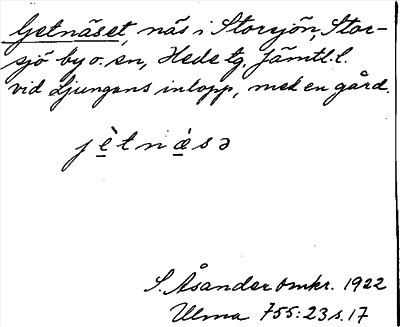 Getnäset, näs i Storsjön, Stor-
sjö by o. en, Hede tg. Jämtl. l.
vid Ljungans inlopp, med en gård.
jè̱tnæ̱̀sə
S. Åsander omkr. 1922
Ulma 755:23 s. 17